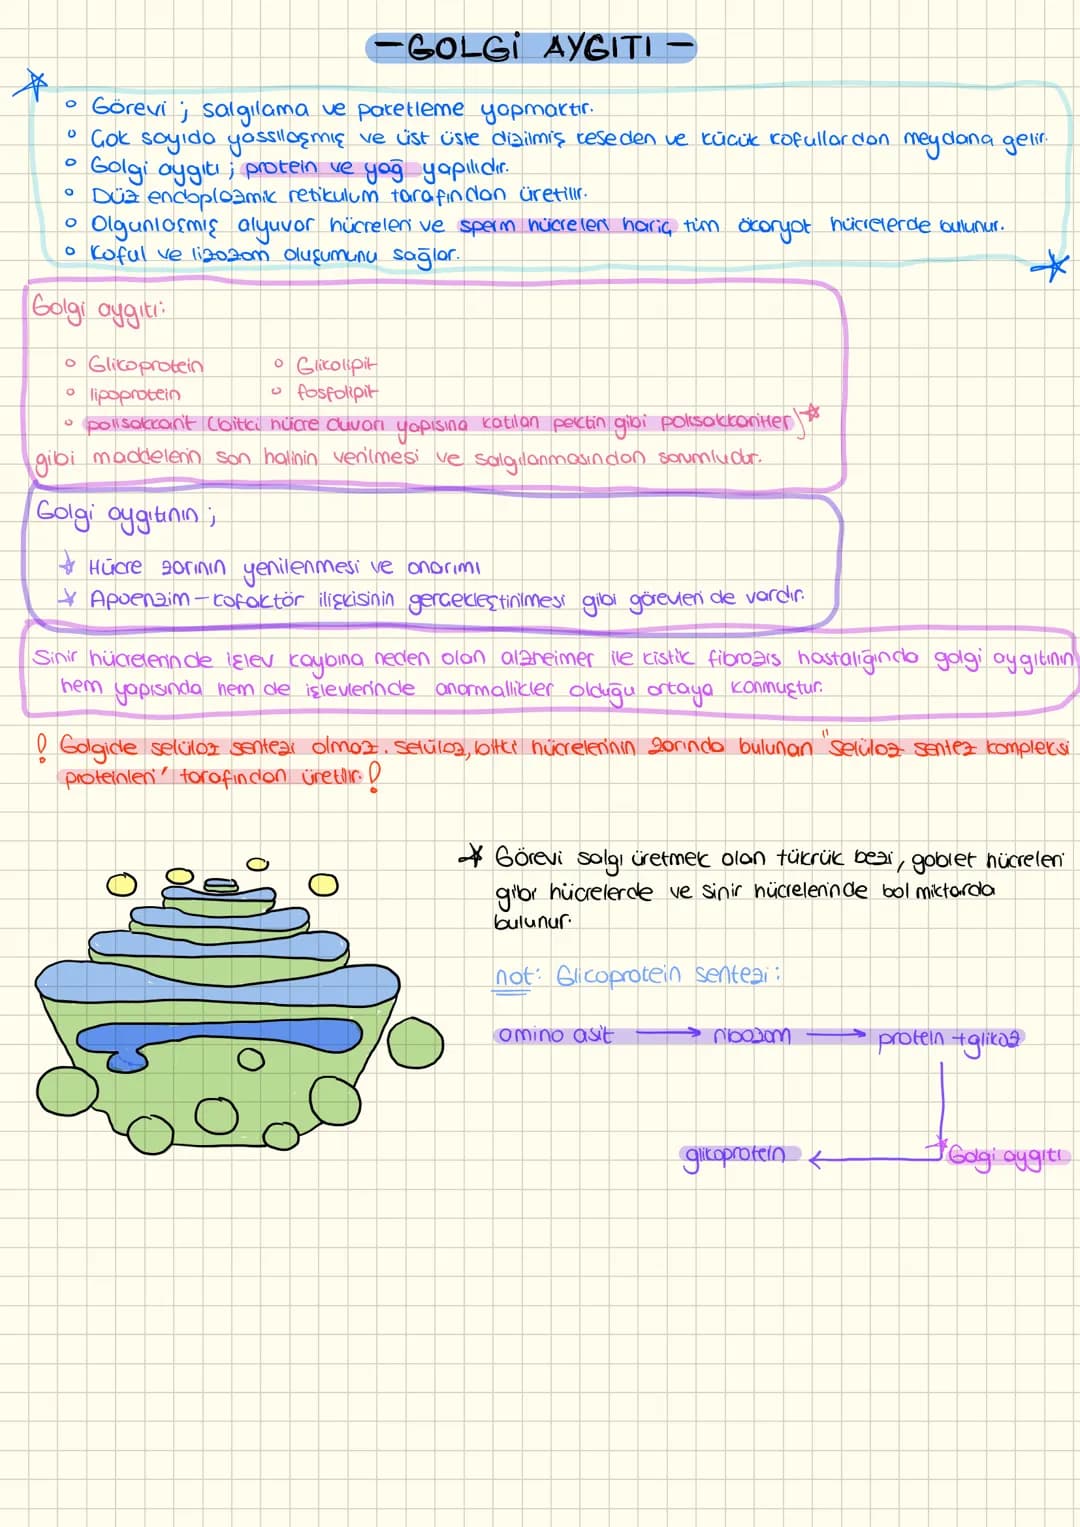 -GOLGİ AYGITI-
Görevi ; salgılama ve paketleme yapmaktır.
Çok sayıda yassılaşmış ve üst üste dizilmiş keseden ve küçük kofullardan meydana gelir.
Golgi aygıtı ; protein ve yağ yapılıdır.
Düz endoplazmik retikulum tarafından üretilir.
Olgunlaşmış alyuvar hücreleri ve sperm hücreleri hariç tüm ökaryot hücrelerde bulunur.
Koful ve lizozom oluşumunu sağlar.
Golgi aygıtı:
Glikoprotein Glikolipit
lipoprotein fosfolipit
polisakkarit (bitki hücre duvarı yapısına katılan pektin gibi polisakkaritler)
gibi maddelerin son halinin verilmesi ve salgılanmasından sorumludur.
Golgi aygıtının ;
Hücre zarının yenilenmesi ve onarımı
Apoenzim-kofaktör ilişkisinin gerçekleştirilmesi gibi görevleri de vardır.
Sinir hücrelerinde işlev kaybına neden olan alzheimer ile kistik fibrozis hastalığında golgi aygıtının
hem yapısında hem de işlevlerinde anormallikler olduğu ortaya konmuştur.
! Golgide selüloz sentezi olmaz. Selüloz, bitki hücrelerinin zarında bulunan "selüloz sentez kompleksi
proteinleri" tarafından üretilir. !
Görevi salgı üretmek olan tükrük bezi, goblet hücreleri
gibi hücrelerde ve sinir hücrelerinde bol miktarda
bulunur.
not: Glikoprotein sentezi:
amino asit → ribozom → protein + glikoz
glikoprotein ← Golgi aygıtı